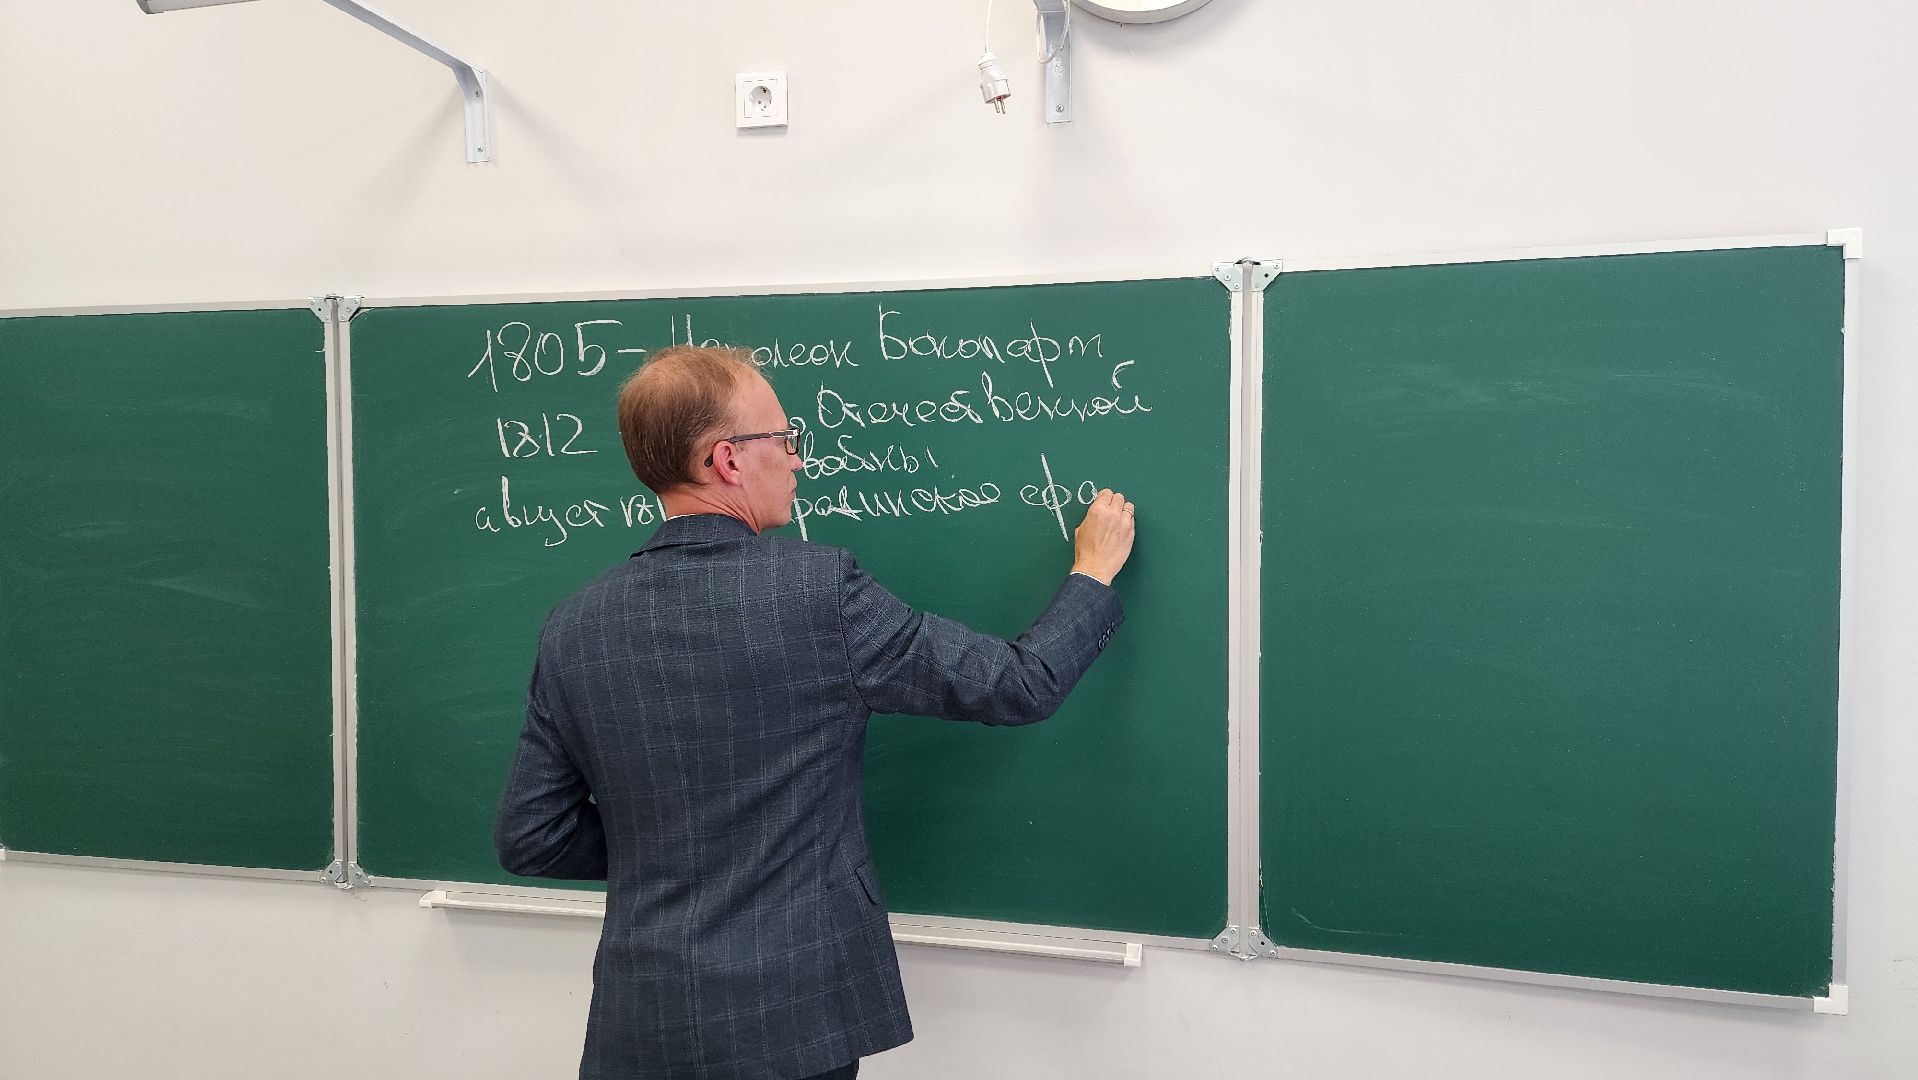 1805 – Наполеон Бонапарт
1812 Отечественной
войны
август сра